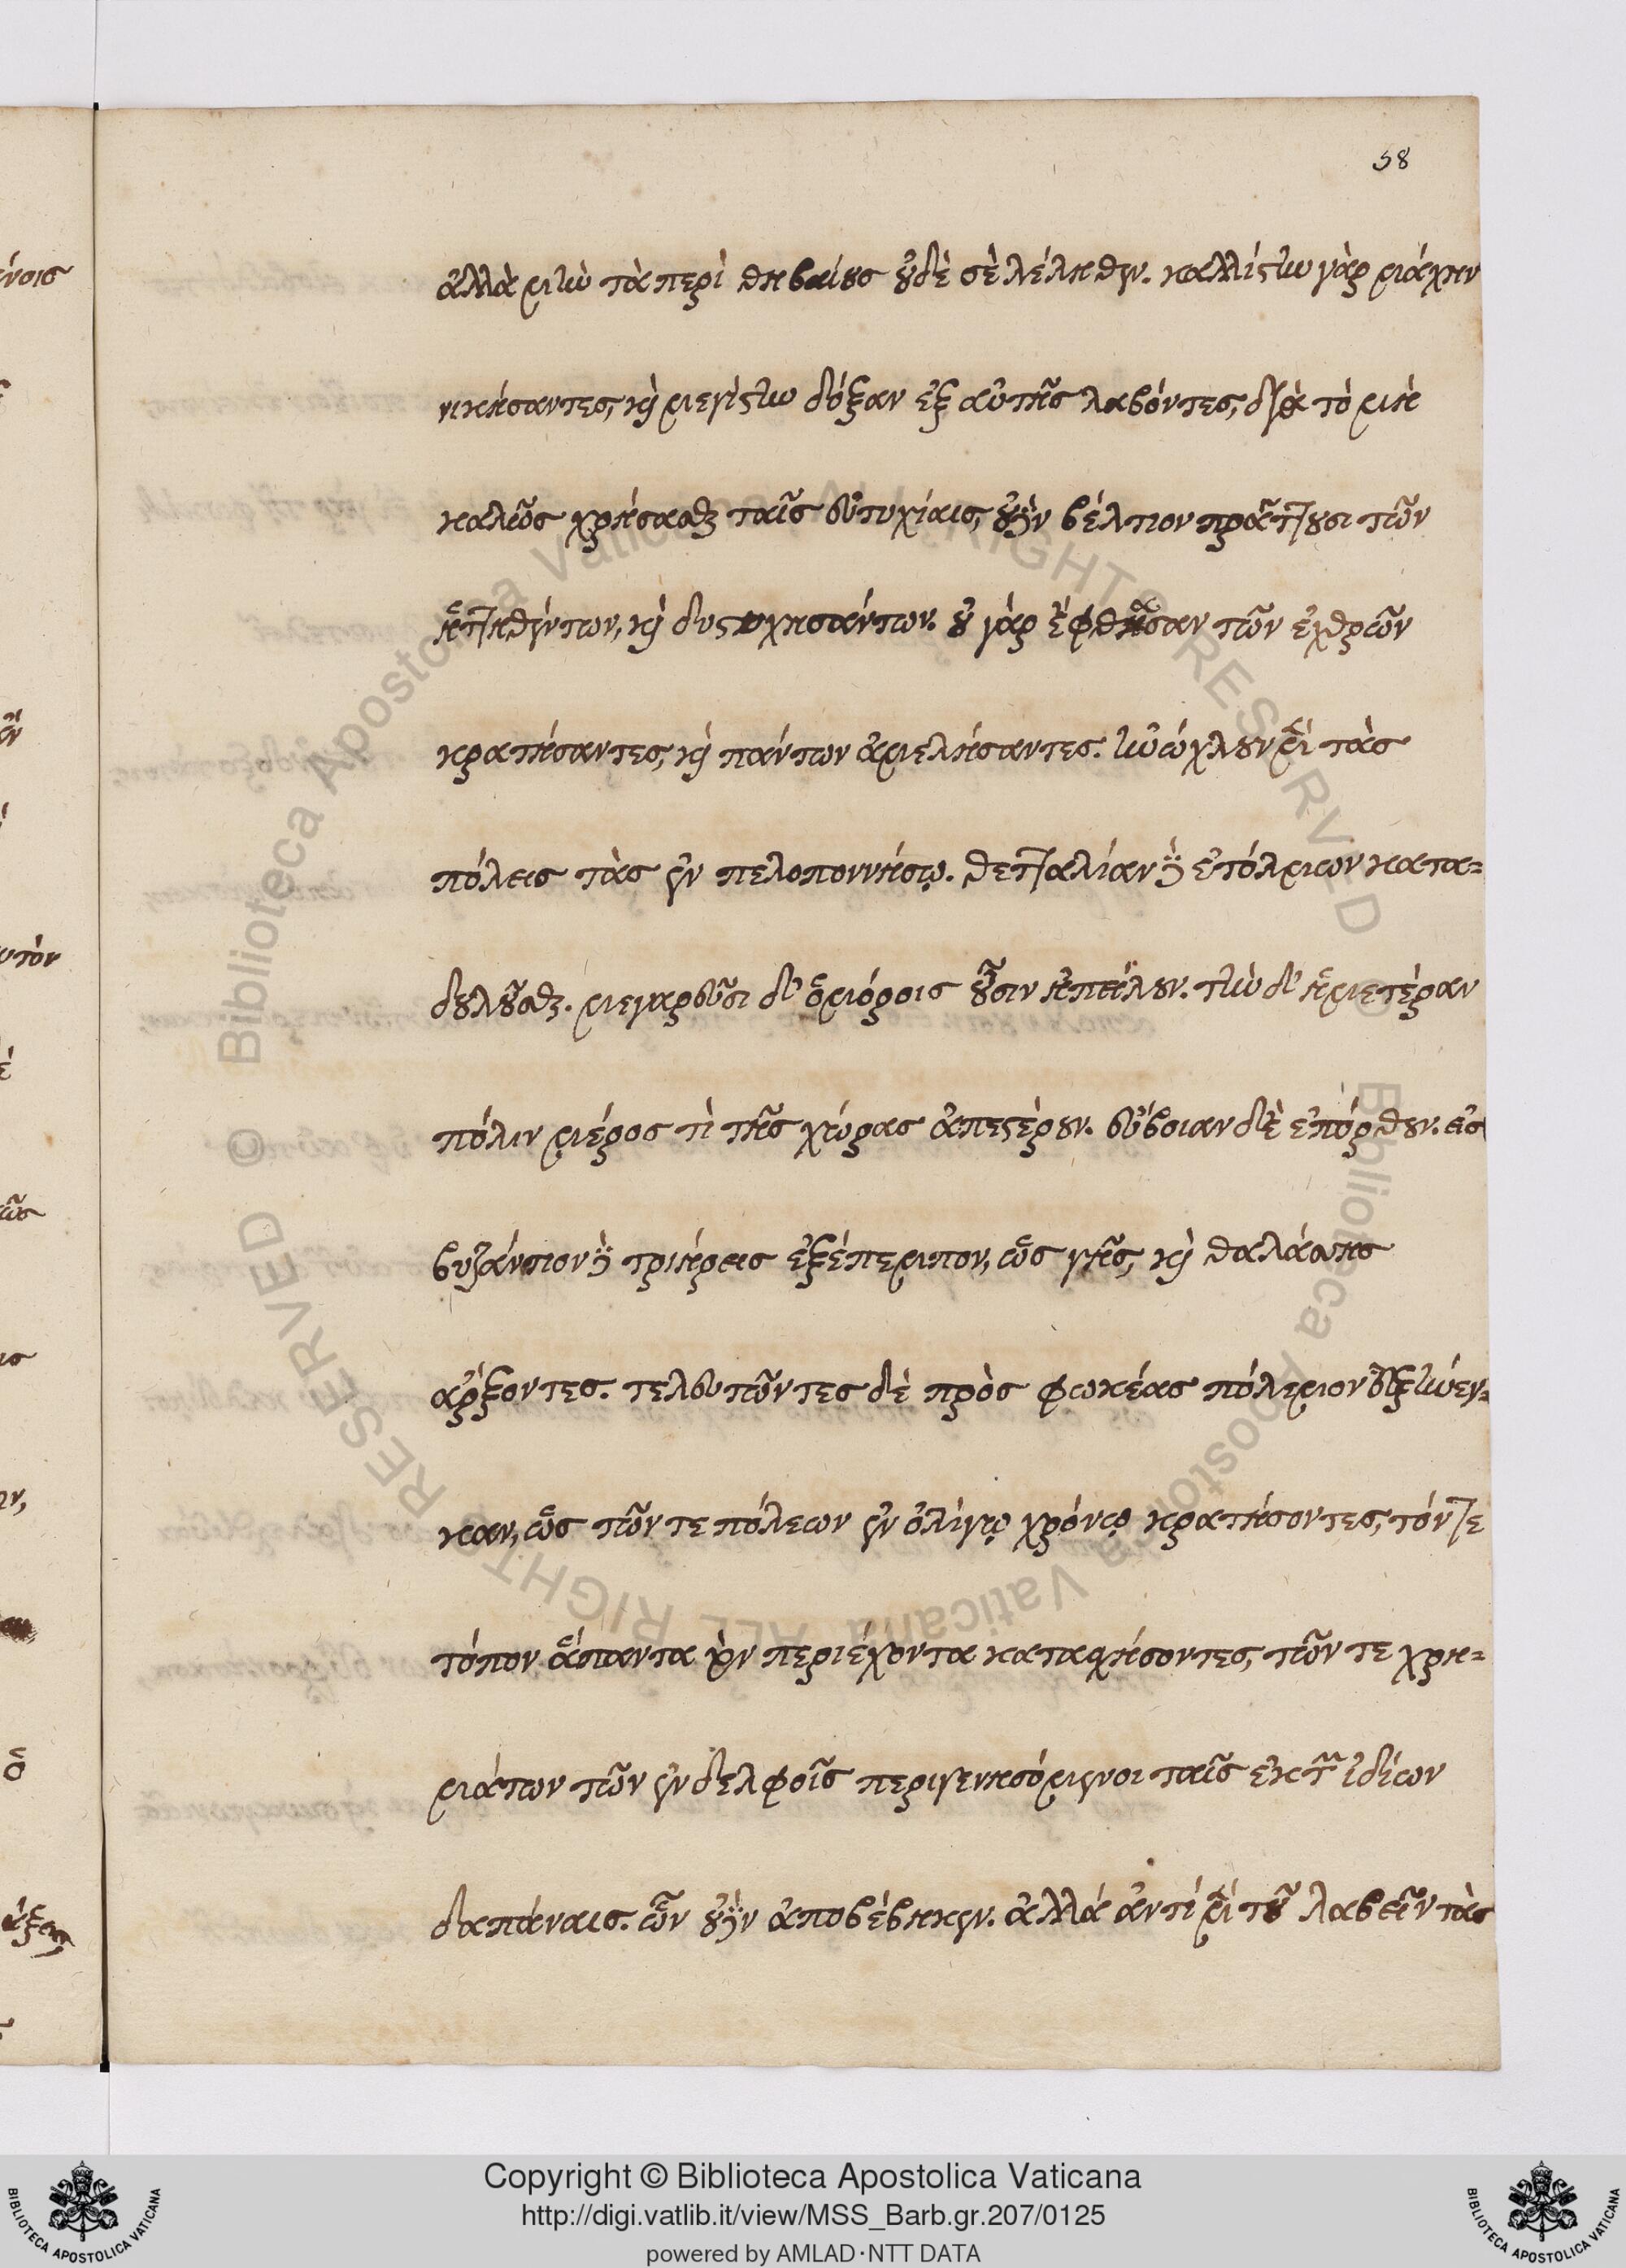 58
ἀλλὰ μὴν τὰ περὶ θηβαίους οὐδὲ σὲ λέληθεν. καλλίστην γὰρ μάχην
νικήσαντες, καὶ μεγίστην δόξαν ἐξ αὐτῆς λαβόντες, διὰ τὸ μὴ
καλῶς χρῆσασθαι ταῖς εὐτυχίαις, οὐδὲν βέλτιον πράττουσι τῶν
ἡττηθέντων, καὶ δυστυχησάντων. οὐ γὰρ ἔφθασαν τῶν ἐχθρῶν
κρατήσαντες, καὶ πάντων ἀμελήσαντες. ἠνώχλουν μὲν τὰς
πόλεις τὰς ἐν πελοποννήσῳ. θετταλίαν δὲ ἐτόλμων κατα-
δουλοῦσθαι. μεγαρεῦσι δ' ὁμόροις οὖσιν ἠπείλουν. τὴν δ' ἡμετέραν
πόλιν μέρος τὶ τῆς χώρας ἀπεστέρουν. εὔβοιαν δὲ ἐπόρθουν. εἰς
βυζάντιον δὲ τριήρεις ἐξέπεμπον, ὡς γῆς, καὶ θαλάσσης
ἄρξοντες. τελευτῶντες δὲ πρὸς φωκέας πόλεμον ἐξήνεγ-
καν, ὡς τῶν τε πόλεων ἐν ὀλίγῳ χρόνῳ κρατήσοντες, τόν τε
τόπον ἅπαντα τὸν περιέχοντα κατασχήσοντες, τῶν τε χρη-
μάτων τῶν ἐν δελφοῖς περιγενησόμενοι ταῖς ἐκ τῶν ἰδίων
δαπάναις. ὧν οὐδὲν ἀποβέβηκεν. ἀλλὰ ἀντὶ μὲν τοῦ λαβεῖν τὰς
Copyright © Biblioteca Apostolica Vaticana
http://digi.vatlib.it/view/MSS_Barb.gr.207/0125
powered by AMLAD·NTT DATA